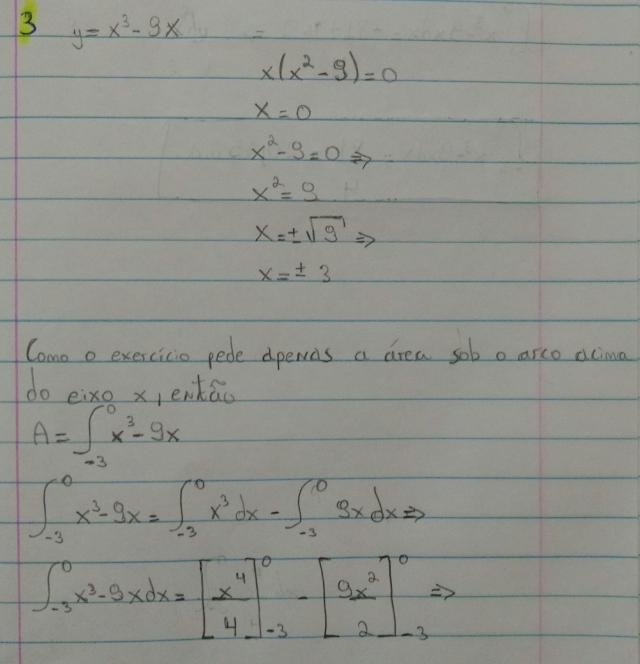 3 y = x³ - 9x
x(x² - 9) = 0
x = 0
x² - 9 = 0 ⇒
x² = 9
x = ±√9 ⇒
x = ± 3
Como o exercício pede apenas a área sob o arco acima
do eixo x, então
A = ∫₋₃⁰ x³ - 9x
∫₋₃⁰ x³ - 9x = ∫₋₃⁰ x³ dx - ∫₋₃⁰ 9x dx ⇒
∫₋₃⁰ x³ - 9x dx = [x⁴/4]₋₃⁰ - [9x²/2]₋₃⁰ ⇒